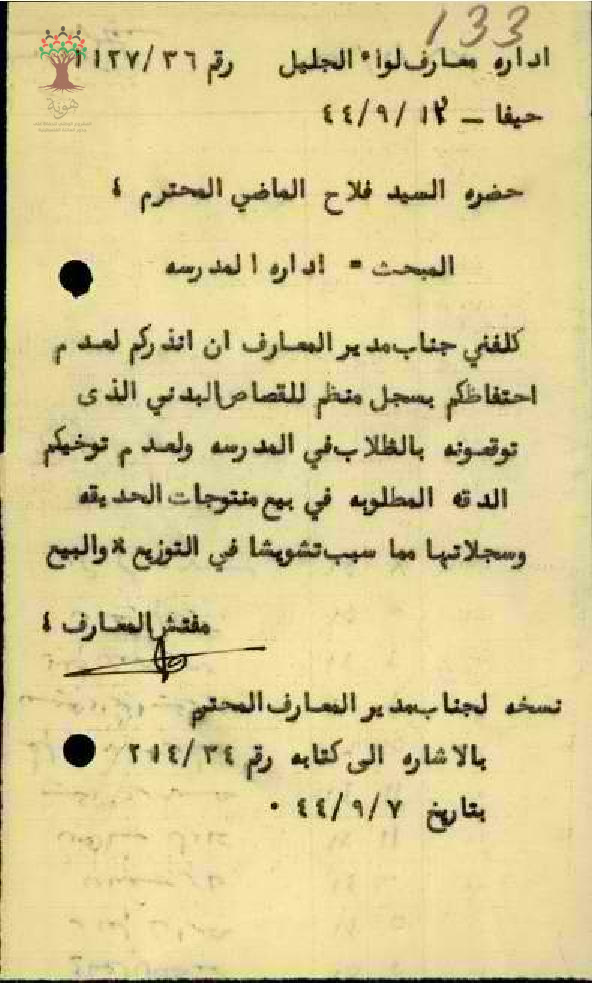 133
اداره معارف لواء الجليل رقم ١١٢٧/٣٦
حيفا — ١٢/٩/٤٤
هوية
حضره السيد فلاح الماضي المحترم ٤
المبحث = اداره المدرسه
كلفني جناب مدير المعارف ان انذركم لعدم
احتفاظكم بسجل منظم للقصاص البدني الذى
توقعونه بالطلاب في المدرسه ولعدم توخيكم
الدقه المطلوبه في بيع منتوجات الحديقه
وسجلاتها مما سبب تشويشا في التوزيع والبيع
مفتش المعارف ٤
نسخه لجناب مدير المعارف المحترم
بالاشاره الى كتابه رقم ٢١٤/٣٤
بتاريخ ٤٤/٩/٧ ٠